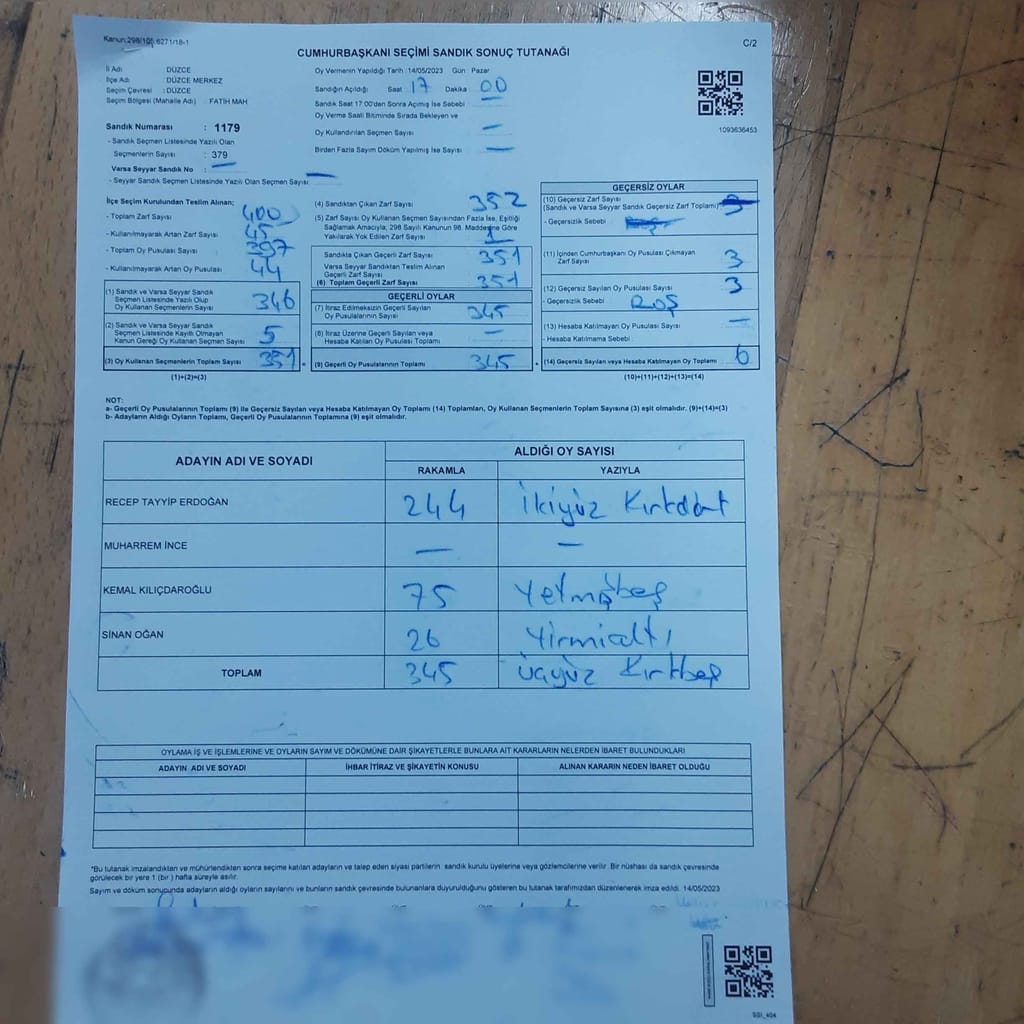 Kanun:298/105,6271/18-1
C/2
CUMHURBAŞKANI SEÇİMİ SANDIK SONUÇ TUTANAĞI
İl Adı : DÜZCE
İlçe Adı : DÜZCE MERKEZ
Seçim Çevresi : DÜZCE
Seçim Bölgesi (Mahalle Adı) : FATİH MAH
Sandık Numarası : 1179
- Sandık Seçmen Listesinde Yazılı Olan
Seçmenlerin Sayısı : 379
Varsa Seyyar Sandık No : —
- Seyyar Sandık Listesinde Yazılı Olan Seçmen Sayısı: —
Oy Vermenin Yapıldığı Tarih :14/05/2023 Gün : Pazar
Sandığın Açıldığı Saat 17 Dakika 00
Sandık Saat 17:00'den Sonra Açılmış İse Sebebi
Oy Verme Saati Bitiminde Sırada Bekleyen ve
Oy Kullandırılan Seçmen Sayısı —
Birden Fazla Sayım Döküm Yapılmış İse Sayısı —
1093636453
İlçe Seçim Kurulundan Teslim Alınan;
- Toplam Zarf Sayısı 400
- Kullanılmayarak Artan Zarf Sayısı 45
- Toplam Oy Pusulası Sayısı 397
- Kullanılmayarak Artan Oy Pusulası 44
(1) Sandık ve Varsa Seyyar Sandık
Seçmen Listesinde Yazılı Olup
Oy Kullanan Seçmenlerin Sayısı 346
(2) Sandık ve Varsa Seyyar Sandık
Seçmen Listesinde Kayıtlı Olmayan
Kanun Gereği Oy Kullanan Seçmen Sayısı 5
(3) Oy Kullanan Seçmenlerin Toplam Sayısı 351
(1)+(2)=(3)
(4) Sandıktan Çıkan Zarf Sayısı 352
(5) Zarf Sayısı Oy Kullanan Seçmen Sayısından Fazla İse, Eşitliği
Sağlamak Amacıyla; 298 Sayılı Kanunun 98. Maddesine Göre
Yakılarak Yok Edilen Zarf Sayısı 1
Sandıkta Çıkan Geçerli Zarf Sayısı 351
Varsa Seyyar Sandıktan Teslim Alınan
Geçerli Zarf Sayısı
(6) Toplam Geçerli Zarf Sayısı 351
GEÇERLİ OYLAR
(7) İtiraz Edilmeksizin Geçerli Sayılan
Oy Pusulalarının Sayısı 345
(8) İtiraz Üzerine Geçerli Sayılan veya
Hesaba Katılan Oy Pusulası Toplamı —
(9) Geçerli Oy Pusulalarının Toplamı 345
GEÇERSİZ OYLAR
(10) Geçersiz Zarf Sayısı
(Sandık ve Varsa Seyyar Sandık Geçersiz Zarf Toplamı)
- Geçersizlik Sebebi
(11) İçinden Cumhurbaşkanı Oy Pusulası Çıkmayan
Zarf Sayısı 3
(12) Geçersiz Sayılan Oy Pusulası Sayısı 3
- Geçersizlik Sebebi BOŞ
(13) Hesaba Katılmayan Oy Pusulası Sayısı —
- Hesaba Katılmama Sebebi
(14) Geçersiz Sayılan veya Hesaba Katılmayan Oy Toplamı 6
(10)+(11)+(12)+(13)=(14)
NOT:
a- Geçerli Oy Pusulalarının Toplamı (9) ile Geçersiz Sayılan veya Hesaba Katılmayan Oy Toplamı (14) Toplamları, Oy Kullanan Seçmenlerin Toplam Sayısına (3) eşit olmalıdır. (9)+(14)=(3)
b- Adayların Aldığı Oyların Toplamı, Geçerli Oy Pusulalarının Toplamına (9) eşit olmalıdır.
ADAYIN ADI VE SOYADI
ALDIĞI OY SAYISI
RAKAMLA YAZIYLA
RECEP TAYYİP ERDOĞAN 244 İkiyüz Kırkdört
MUHARREM İNCE — —
KEMAL KILIÇDAROĞLU 75 Yetmişbeş
SİNAN OĞAN 26 Yirmialtı
TOPLAM 345 Üçyüz Kırkbeş
OYLAMA İŞ VE İŞLEMLERİNE VE OYLARIN SAYIM VE DÖKÜMÜNE DAİR ŞİKAYETLERLE BUNLARA AİT KARARLARIN NELERDEN İBARET BULUNDUKLARI
ADAYIN ADI VE SOYADI İHBAR İTİRAZ VE ŞİKAYETİN KONUSU ALINAN KARARIN NEDEN İBARET OLDUĞU
*Bu tutanak imzalandıktan ve mühürlendikten sonra seçime katılan adayların ve talep eden siyasi partilerin sandık kurulu üyelerine veya gözlemcilerine verilir. Bir nüshası da sandık çevresinde
görülecek bir yere 1 (bir) hafta süreyle asılır.
Sayım ve döküm sonucunda adayların aldığı oyların sayılarını ve bunların sandık çevresinde bulunanlara duyurulduğunu gösteren bu tutanak tarafımızdan düzenlenerek imza edildi. 14/05/2023